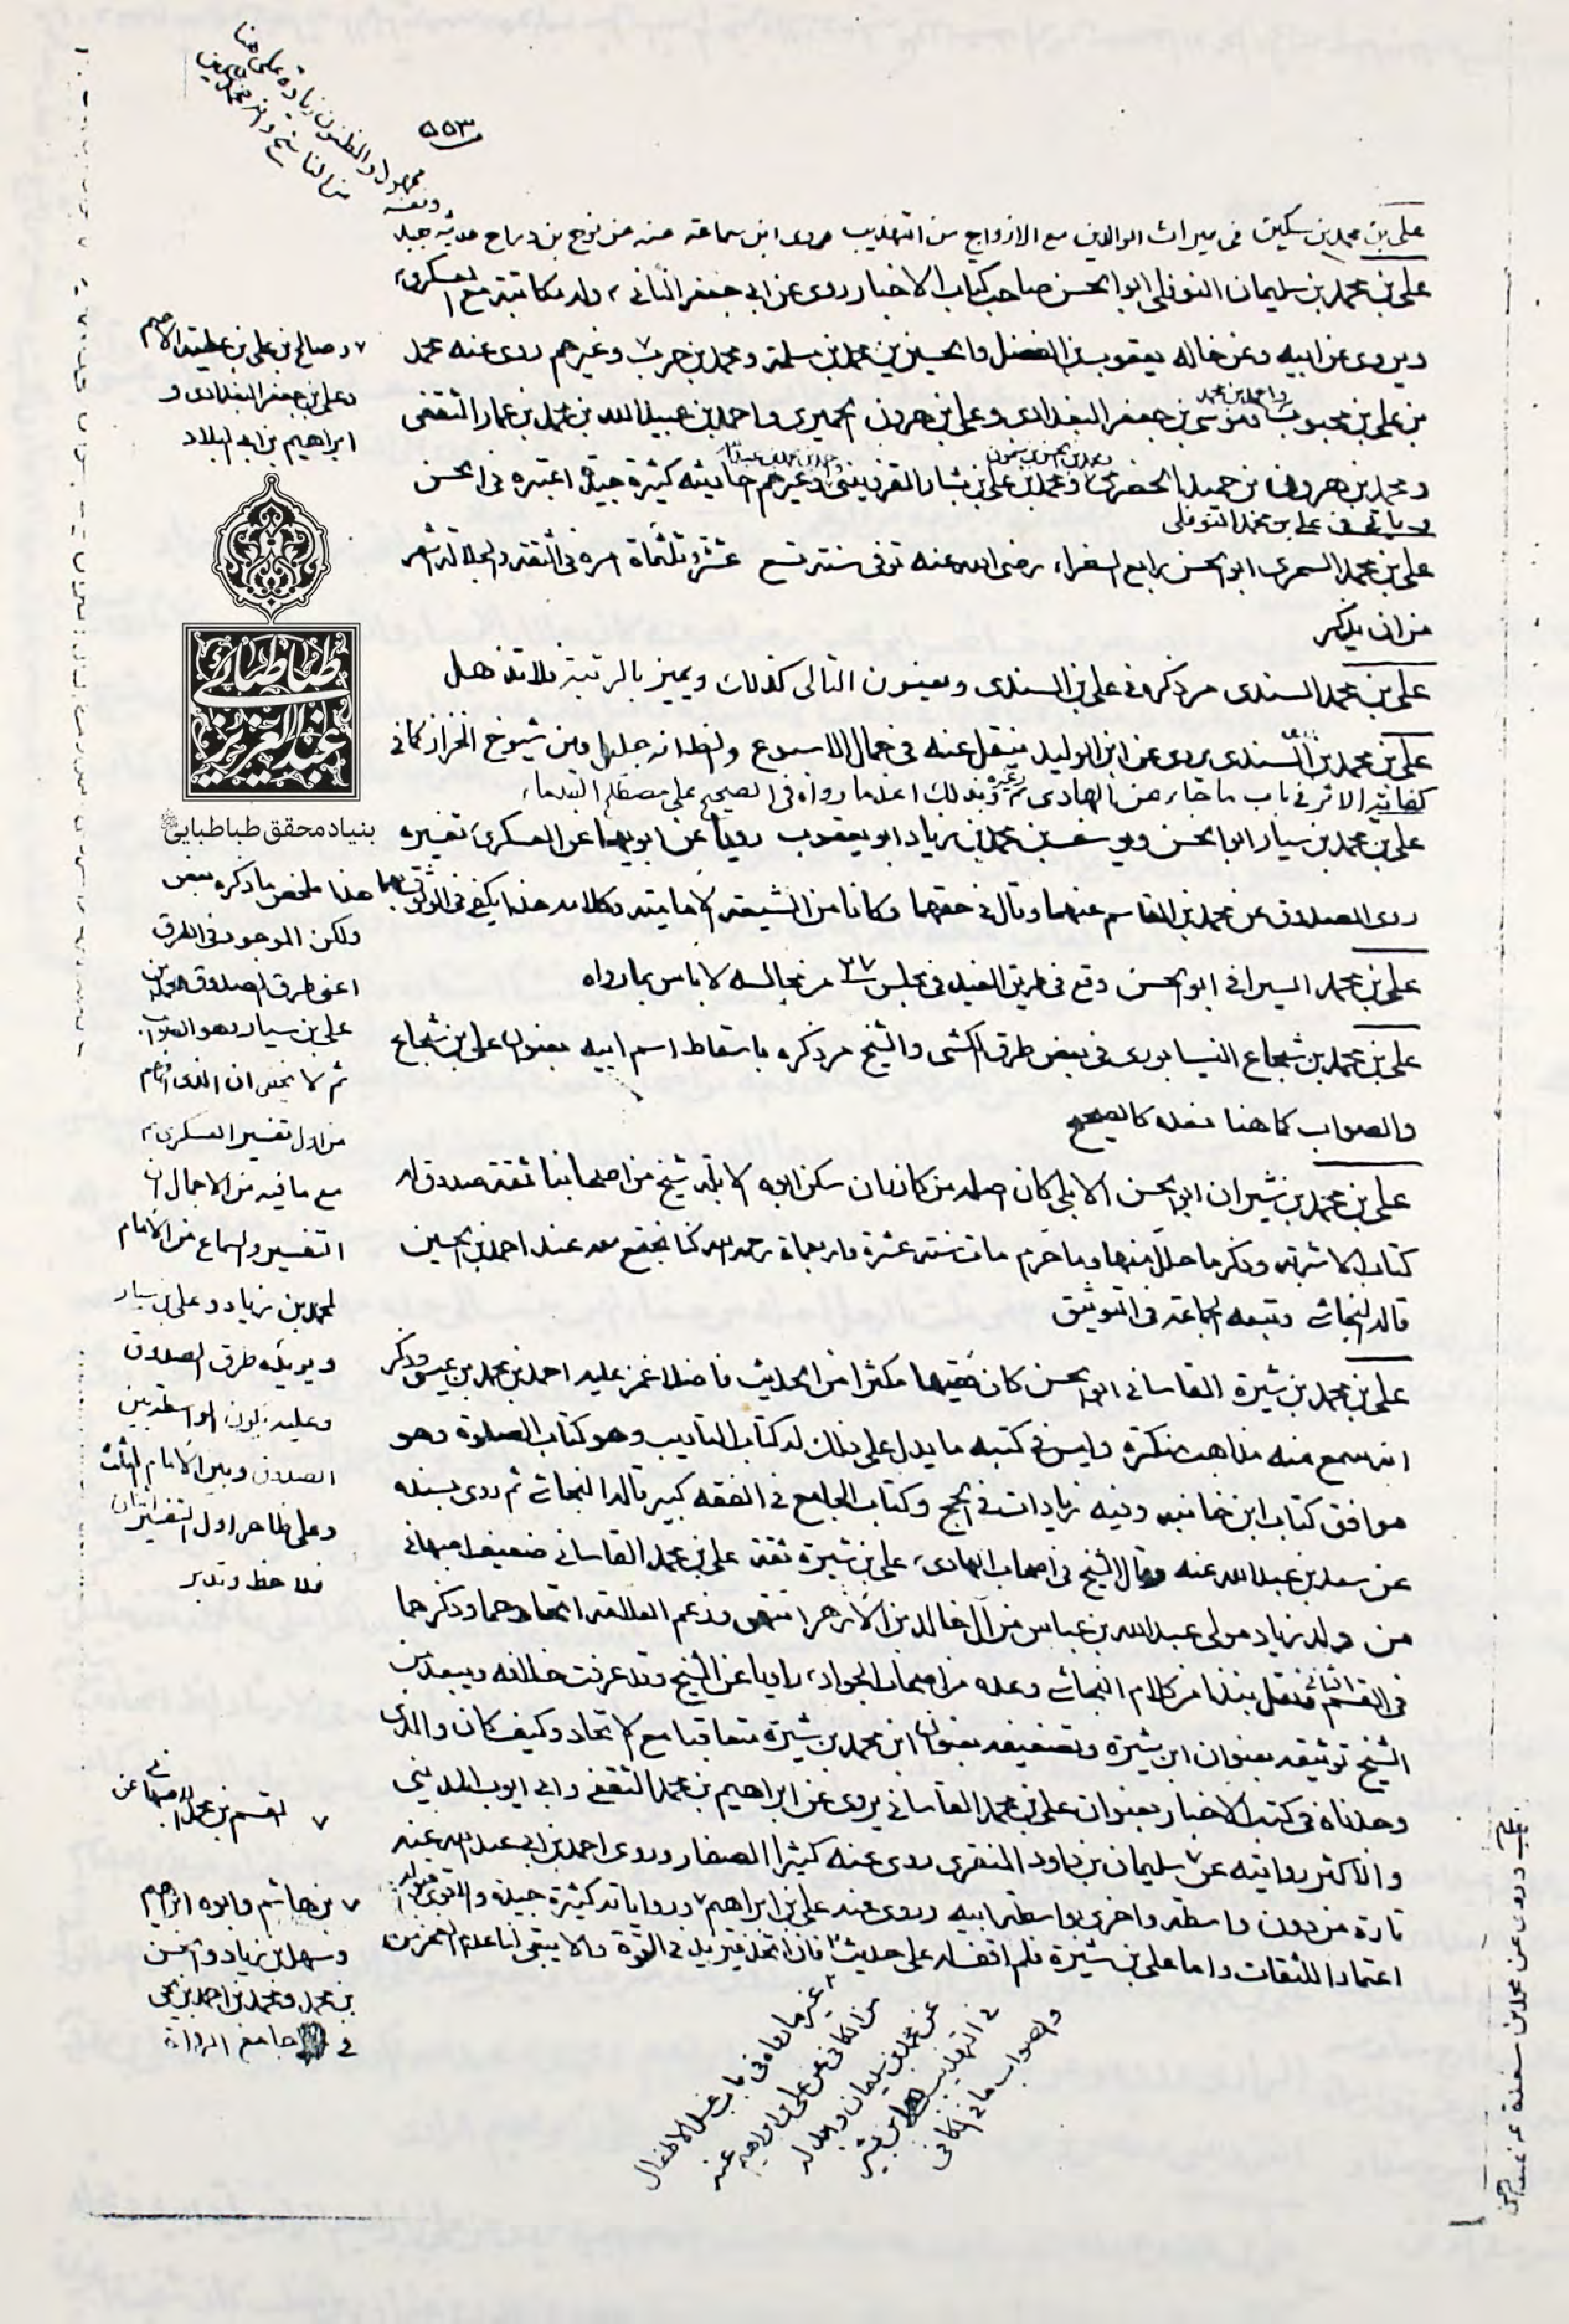 ٥٥٣
علي بن محمد بن سكين في ميراث الوالدين مع الازواج من التهذيب روى ابن سماعة عنه عن نوح بن دراج حديثه جيد
علي بن محمد بن سليمان النوفلي ابو الحسن صاحب كتاب الاخبار روى عن ابي جعفر الثاني ع وله مكاتبة مع العسكري ع
ويروي عن ابيه وعن خاله يعقوب بن الفضل والحسين بن محمد بن سلمة ومحمد بن حرب ٧ وغيرهم روى عنه محمد
بن علي بن محبوب واحمد بن محمد وموسى بن جعفر البغدادي وعلي بن هرون الحميري واحمد بن عبيد الله بن محمد بن عمار الثقفي
ومحمد بن هرون بن حميد الحضرمي ومحمد بن علي بن بشار القزويني وغيرهم احاديثه كثيرة جيدة اعتبره في الحسن
وياتي في علي بن محمد النوفلي
علي بن محمد السمري ابو الحسن رابع السفراء رضي الله عنه توفي سنة تسع عشر وثلثماة امره في الثقة والجلالة اشهر
من ان يذكر
علي بن محمد السندي مر ذكره في علي بن السندي وبعنوان التالي كذلك ويميز بالرتبة فلا تذهل
علي بن محمد بن السندي يروي عن ابن الوليد ينقل عنه في جمال الاسبوع والظ انه جليل ومن شيوخ الخزاز كما في
كفاية الاثر في باب ما جاء عن الهادي ع وغيره وبذلك اعد ما رواه في الصحيح على مصطلح القدماء
علي بن محمد بن سيار ابو الحسن ويوسف بن محمد بن زياد ابو يعقوب رويا عن ابويهما عن العسكري ع تفسيره
روى الصدوق عن محمد بن القاسم عنهما وقال في حقهما وكانا من الشيعة الامامية وكلامه هذا يكفي في الوثوق بهما
علي بن محمد السيرافي ابو الحسن وقع في طريق المفيد في مجلس ٣٧ من مجالسه لا باس بما رواه
علي بن محمد بن شجاع النيسابوري في بعض طرق الكشي والشيخ مر ذكره باسقاط اسم ابيه بعنوان علي بن شجاع
والصواب كما هنا فعده كالصحيح
علي بن محمد بن شيران ابو الحسن الابلي كان اصله من كازران سكن ابوه الابلة شيخ من اصحابنا ثقة صدوق له
كتاب الاشربة وذكر ما حلل منها وما حرم مات سنة عشرة واربعماة رحمه الله كنا نجتمع معه عند احمد بن الحسين
قاله النجاشي وتبعه الجماعة في التوثيق
علي بن محمد بن شيرة القاساني ابو الحسن كان فقيها مكثرا من الحديث فاضلا غمز عليه احمد بن محمد بن عيسى وذكر
انه سمع منه مذاهب منكرة وليس في كتبه ما يدل على ذلك له كتاب التاديب وهو كتاب الصلوة وهو
موافق كتاب ابن خانبه وفيه زيادات في الحج وكتاب الجامع في الفقه كبير قاله النجاشي ثم روى بسنده
عن سعد بن عبد الله عنه وقال الشيخ في اصحاب الهادي ع علي بن شيرة ثقة علي بن محمد القاساني ضعيف اصبهاني
من ولد زياد مولى عبد الله بن عباس من آل خالد بن الازهر انتهى وزعم العلامة اتحادهما وذكرهما
في القسم الثاني فنقل نبذا من كلام النجاشي وعده من اصحاب الجواد ع راويا عن الشيخ وقد عرفت خلافه ويبعد من
الشيخ توثيقه بعنوان ابن شيرة وتضعيفه بعنوان ابن محمد بن شيرة متعاقبا مع الاتحاد وكيف كان والذي
وجدناه في كتب الاخبار بعنوان علي بن محمد القاساني يروي عن ابراهيم بن محمد الثقفي وابي ايوب المديني
والاكثر روايته عن ٧ سليمان بن داود المنقري روى عنه كثيرا الصفار وروى احمد بن ابي عبد الله عنه
تارة من دون واسطة واخرى بواسطة ابيه وروى عنه علي بن ابراهيم ٧ ورواياته كثيرة جيدة والاقوى
اعتمادا للثقات واما علي بن شيرة فلم اقف له على حديث فان اتحدا فتزيد في القوة والا يبقى
٧ وصالح بن علي بن عطية الاصم
وعلي بن جعفر البغدادي و
ابراهيم بن ابي البلاد
طباطبائي
عبد العزيز
بنیاد محقق طباطبایی
هذا ملخص ما ذكره بعض
ولكن الموجود في الطرق
اعني طرق الصدوق محمد بن
علي بن سيار وهو الصواب
ثم لا يخفى ان الذي افهم
من اول تفسير العسكري ع
مع ما فيه من الاجمال ان
التفسير والسماع من الامام
لمحمد بن زياد وعلي بن سيار
ويؤيده طرق الصدوق
وعليه يكون الواسطة بين
الصدوق وبين الامام ثلثة
وعلى ظاهر اول التفسير اثنان
فلاحظ وتدبر
٧ القسم بن محمد الاصبهاني عن
٧ بن هاشم وابوه ابراهيم
وسهل بن زياد والحسن
بن محمد ومحمد بن احمد بن يحيى
في جامع الرواة
غير ما رواه في باب غسل الاطفال
من الكافي عن علي بن ابراهيم عنه
عن محمد بن سليمان
في التهذيب
والصواب ما في الكافي